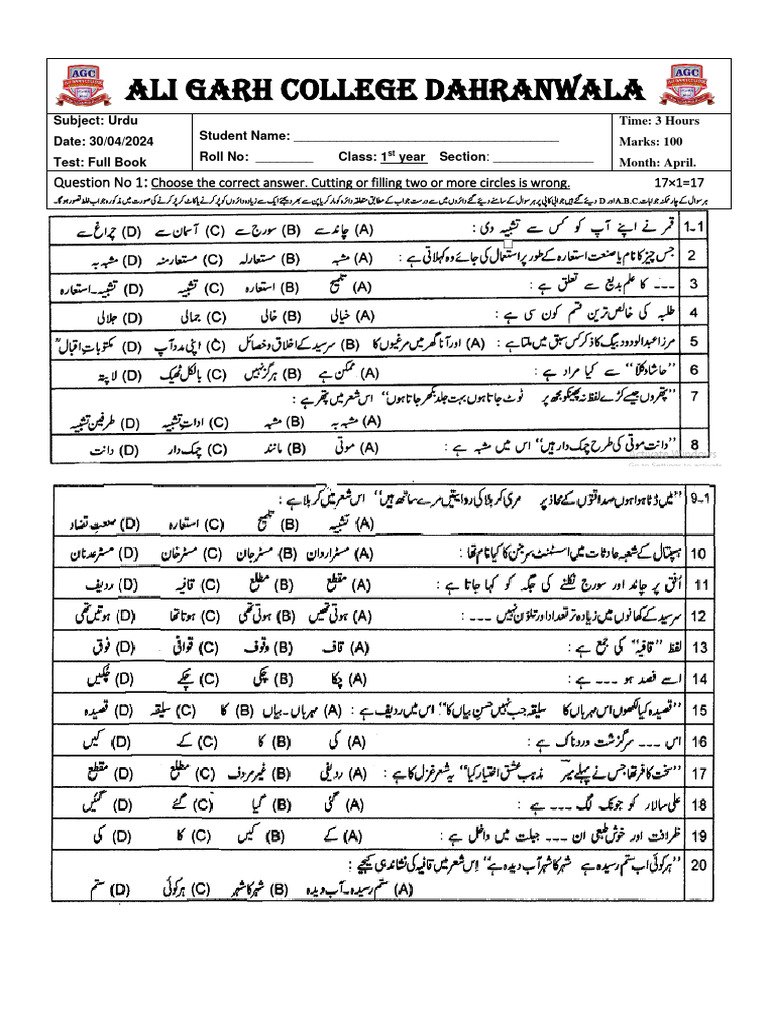 AGC
ALI GARH COLLEGE DAHRANWALA
AGC
Subject: Urdu
Date: 30/04/2024
Test: Full Book
Student Name: ___________________________________
Roll No: ________ Class: 1st year Section: _____________
Time: 3 Hours
Marks: 100
Month: April.
Question No 1: Choose the correct answer. Cutting or filling two or more circles is wrong. 17×1=17
ہر سوال کے چار ممکنہ جوابات A،B،C اور D دیئے گئے ہیں جوابی کاپی پر ہر سوال کے سامنے دیئے گئے دائروں میں سے درست جواب کے مطابق متعلقہ دائرہ کو مارکر یا پن سے بھر دیجئے ایک سے زیادہ دائروں کو پر کرنے یا کاٹ کر پر کرنے کی صورت میں مذکورہ جواب غلط تصور ہوگا۔
1-1 قمر نے اپنے آپ کو کس سے تشبیہ دی : (A) چاند سے (B) سورج سے (C) آسمان سے (D) چراغ سے
2 جس چیز کا نام یا صنعت استعارہ کے طور پر استعمال کی جائے وہ کہلاتی ہے : (A) مشبہ (B) مستعارلہ (C) مستعارمنہ (D) مشبہ بہ
3 --- کا علم بدیع سے تعلق ہے : (A) تلمیح (B) استعارہ (C) تشبیہ (D) تشبیہ۔استعارہ
4 طلبہ کی خالص ترین قسم کون سی ہے : (A) خیالی (B) خالی (C) جمالی (D) جلالی
5 مرزا عبدالودود بیگ کا ذکر کس سبق میں ملتا ہے : (A) اور آنا گھر میں مرغیوں کا (B) سرسید کے اخلاق و خصائل (C) اپنی مدد آپ (D) مکتوبات اقبالؒ
6 "حاشا و کلّا" سے کیا مراد ہے : (A) ممکن ہے (B) ہرگز نہیں (C) بالکل ٹھیک (D) لا پتہ
7 "پتھروں جیسے کڑے لفظ نہ پھینکو مجھ پر ٹوٹ جاتا ہوں بہت جلد بکھر جاتا ہوں" اس شعر میں پتھر ہے :
(A) مشبہ بہ (B) مشبہ (C) ادات تشبیہ (D) طرفین تشبیہ
8 "دانت موتی کی طرح چمک دار ہیں" اس میں مشبہ ہے : (A) موتی (B) مانند (C) چمک دار (D) دانت
Activate Windows
9-1 "میں ڈٹا ہوا ہوں صداقتوں کے محاذ پر مری کربلا کی روایتیں مرے ساتھ ہیں" اس شعر میں کربلا ہے :
(A) تشبیہ (B) تلمیح (C) استعارہ (D) صنعت تضاد
10 ہسپتال کے شعبہ حادثات میں اسسٹنٹ سرجن کا کیا نام تھا : (A) مسٹر اردان (B) مسٹر جان (C) مسٹر خان (D) مسٹر عدنان
11 اُفق پر چاند اور سورج نکلنے کی جگہ کو کہا جاتا ہے : (A) مقطع (B) مطلع (C) قافیہ (D) ردیف
12 سرسید کے کھانوں میں زیادہ تر تعداد اور تلوّن نہیں --- : (A) ہوتی تھیں (B) ہوتی تھی (C) ہوتا تھا (D) ہوتیں تھی
13 لفظ "قافیہ" کی جمع ہے : (A) قاف (B) وقوف (C) قوافی (D) فوق
14 اسے قصد ہو --- ہے : (A) چکا (B) چکی (C) چکے (D) چکیں
15 "قصیدہ کیا لکھوں اس مہرباں کا سلیقہ جب نہیں حسن بیاں کا" اس میں ردیف ہے : (A) مہرباں۔بیاں (B) کا (C) سلیقہ (D) قصیدہ
16 اس --- سرگزشت دردناک ہے : (A) کی (B) کا (C) کے (D) کیں
17 "سخت کافر تھا جس نے پہلے میر مذہب عشق اختیار کیا" یہ شعر غزل کا ہے : (A) ردیفی (B) غیر مردف (C) مطلع (D) مقطع
18 علی سالار کو جونک لگ --- ہے : (A) گئی (B) گیا (C) گئے (D) گئیں
19 ظرافت اور خوش طبعی ان --- جبلت میں داخل ہے : (A) کے (B) کیں (C) کا (D) کی
20 "ہر کوئی اب ستم رسیدہ ہے شہر کا شہر آب دیدہ ہے" اس شعر میں قافیہ کی نشاندہی کیجیے :
(A) ستم رسیدہ۔آب دیدہ (B) شہر کا شہر (C) ہر کوئی (D) ستم